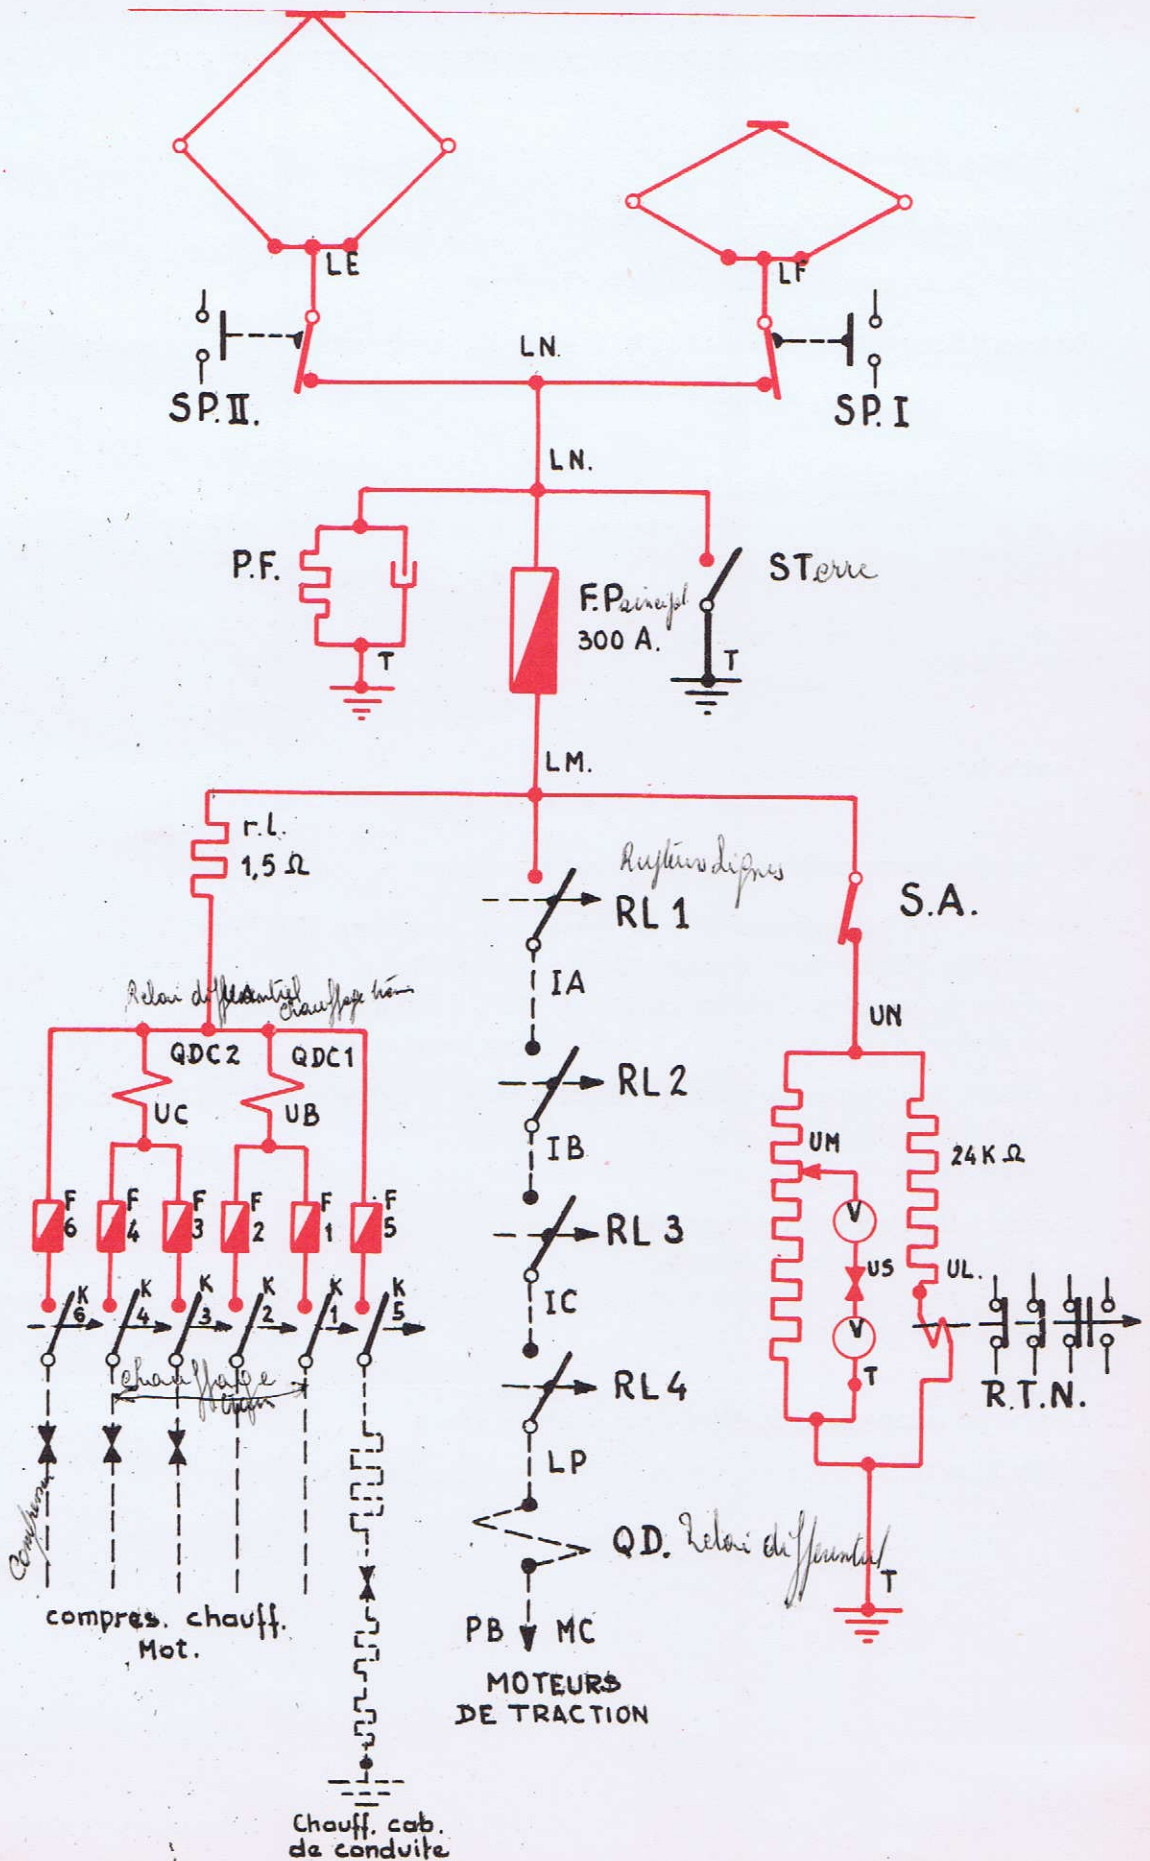 LE
LF
SP.II.
LN.
SP.I
LN.
P.F.
F.P
300 A.
STerre
T
T
LM.
r.l.
1,5 Ω
RL 1
S.A.
IA
Relai différentiel
chauffage
QDC2
QDC1
UN
UC
UB
RL2
UM
24K Ω
IB
F
6
F
4
F
3
F
2
F
1
F
5
V
RL 3
US
UL.
K
6
K
4
K
3
K
2
K
1
K
5
IC
V
T
R.T.N.
chauffage
RL4
LP
Compresseur
QD. Relai différentiel
T
compres. chauff.
Mot.
PB MC
MOTEURS
DE TRACTION
Chauff. cab.
de conduite